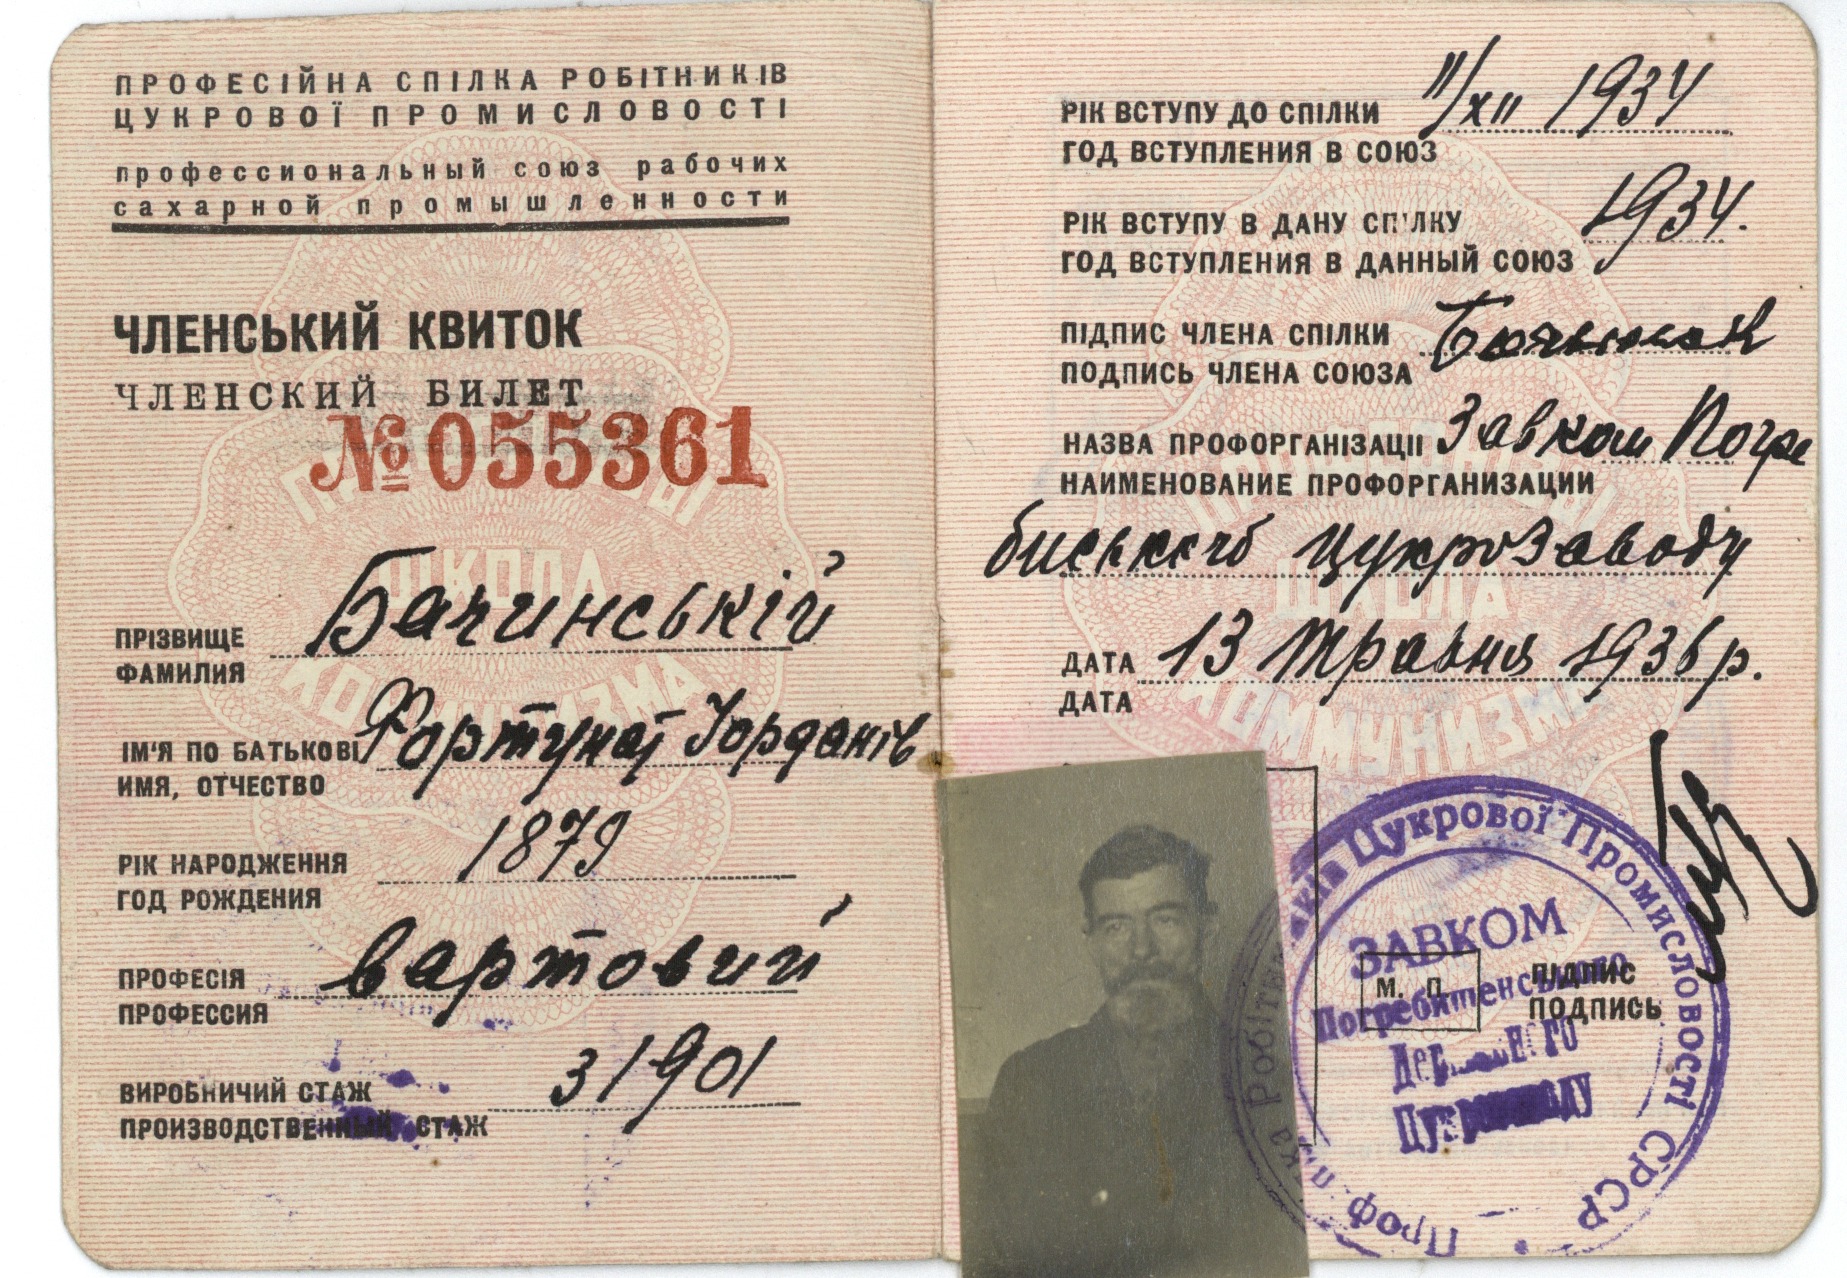 ПРОФЕСІЙНА СПІЛКА РОБІТНИКІВ
ЦУКРОВОЇ ПРОМИСЛОВОСТІ
профессиональный союз рабочих
сахарной промышленности
ЧЛЕНСЬКИЙ КВИТОК
ЧЛЕНСКИЙ БИЛЕТ
№ 055361
ШКОЛА
ПРІЗВИЩЕ Бачинській
ФАМИЛИЯ
ІМ'Я ПО БАТЬКОВІ Фортунат Йорданів
ИМЯ, ОТЧЕСТВО
1879
РІК НАРОДЖЕННЯ
ГОД РОЖДЕНИЯ
ПРОФЕСІЯ вартовий
ПРОФЕССИЯ
ВИРОБНИЧИЙ СТАЖ З 1901
ПРОИЗВОДСТВЕННЫЙ СТАЖ
РІК ВСТУПУ ДО СПІЛКИ 11/XII 1934
ГОД ВСТУПЛЕНИЯ В СОЮЗ
РІК ВСТУПУ В ДАНУ СПІЛКУ 1934.
ГОД ВСТУПЛЕНИЯ В ДАННЫЙ СОЮЗ
ПІДПИС ЧЛЕНА СПІЛКИ
ПОДПИСЬ ЧЛЕНА СОЮЗА
НАЗВА ПРОФОРГАНІЗАЦІЇ Завком Погре
НАИМЕНОВАНИЕ ПРОФОРГАНИЗАЦИИ
цукрозаводу
ШКОЛА
ДАТА 13 травня 1936 р.
ДАТА
КОММУНИЗМА
Цукрової Промисловості СРСР
ЗАВКОМ
Погребищенського
Державного
Цукрозаводу
М. П.
ПІДПИС
ПОДПИСЬ